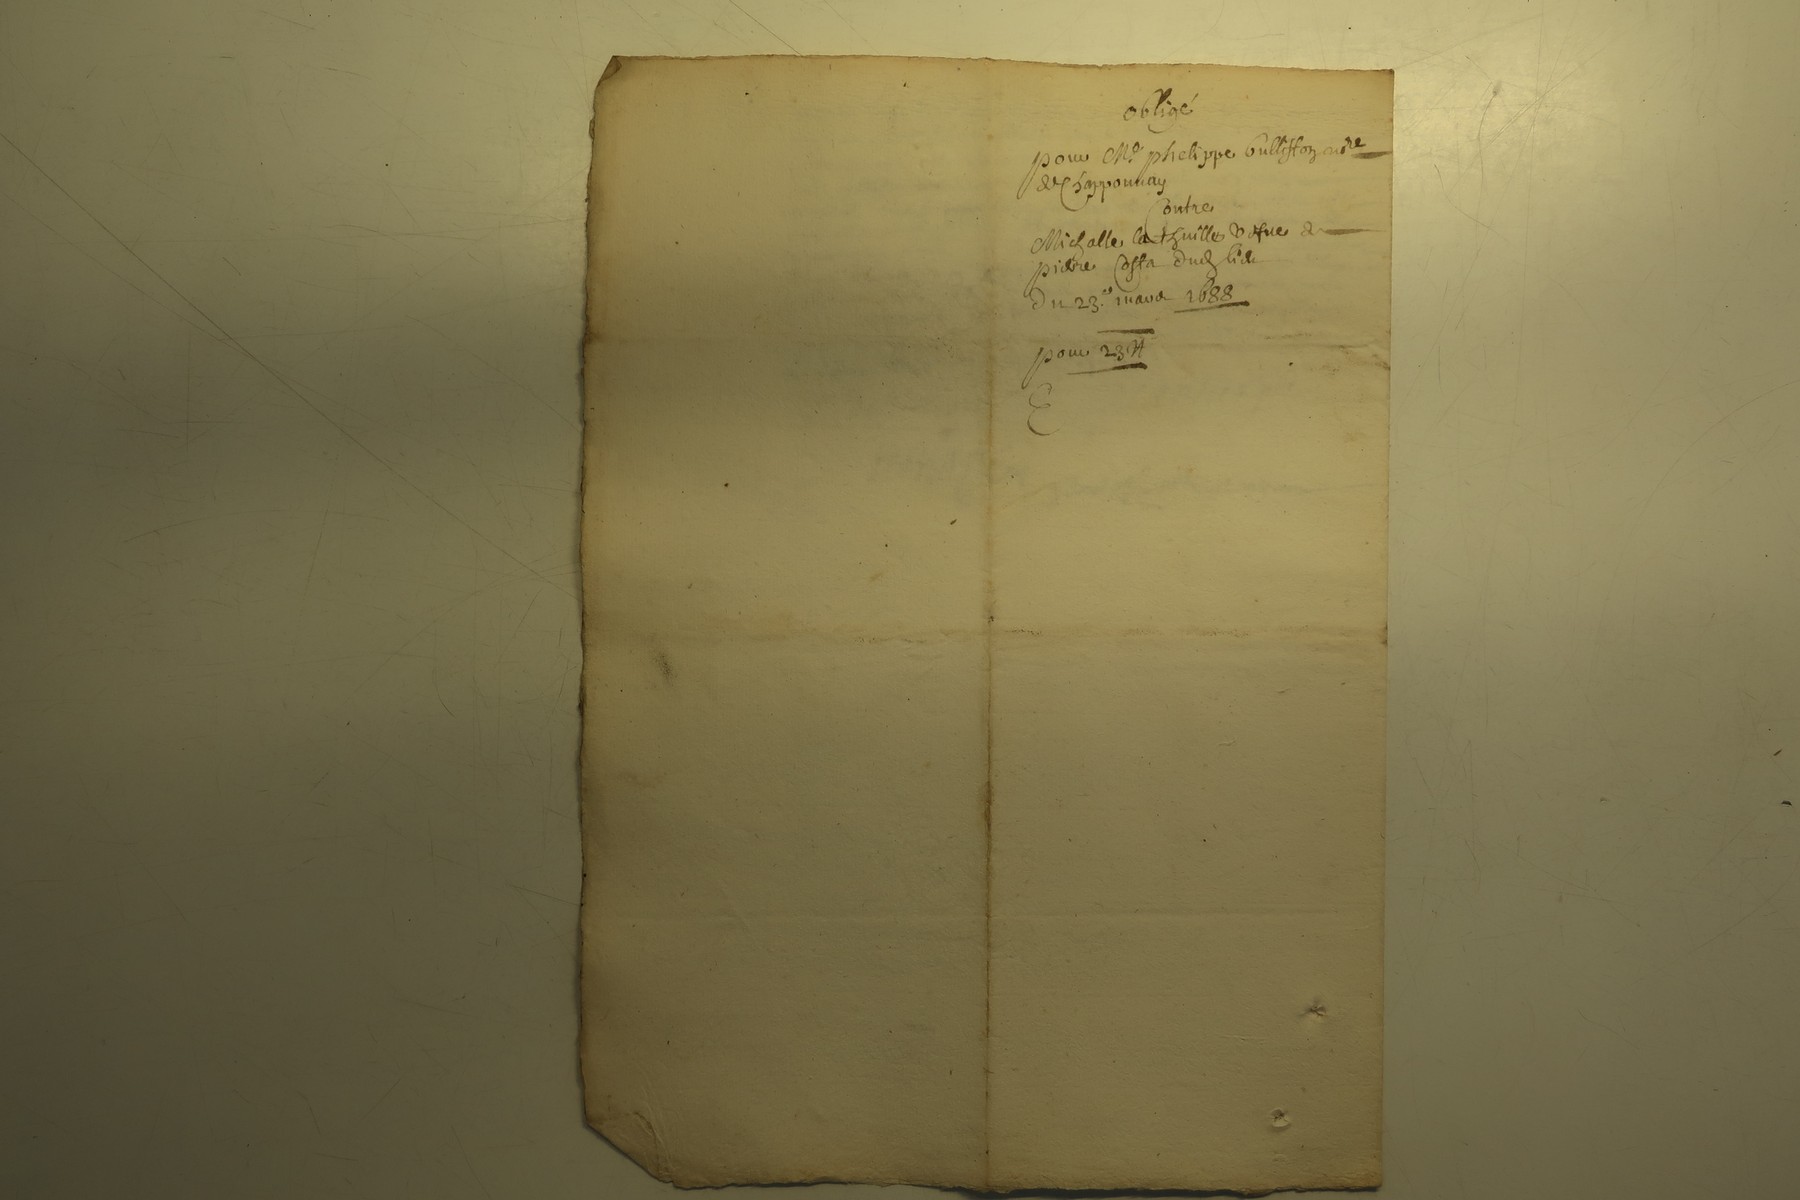 obligé
pour Me phelippe bullisson nore
de Chapponnay
Contre
Michalle la thuille vefve de
pierre Coffa dud lieu
du 23e mars 1688
pour 23 ₶